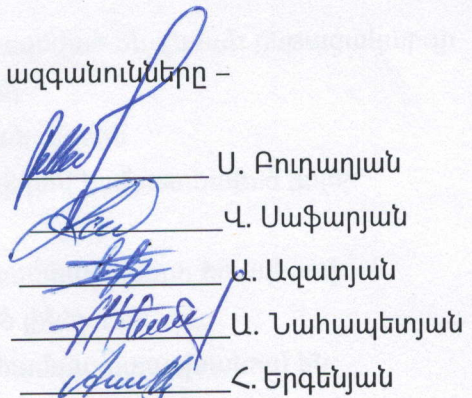 ազգանունները –
Ս. Բուդաղյան
Վ. Սաֆարյան
Ա. Ազատյան
Ա. Նահապետյան
Հ. Երգենյան